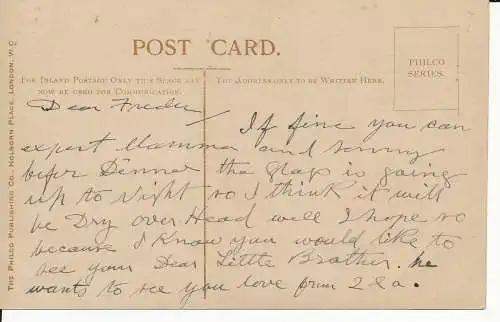 POST CARD.
FOR INLAND POSTAGE ONLY THIS SPACE MAY
NOW BE USED FOR COMMUNICATION.
THE ADDRESS ONLY TO BE WRITTEN HERE.
PHILCO
SERIES.
THE PHILCO PUBLISHING CO., HOLBORN PLACE, LONDON, W.C.
Dear
If fine you can
expect Mamma and sonny
befor Dinner the Glass is going
up to night so I think it will
be Dry over Head well I hope so
because I Know you would like to
see your Dear Little Brother. he
wants to see you love from